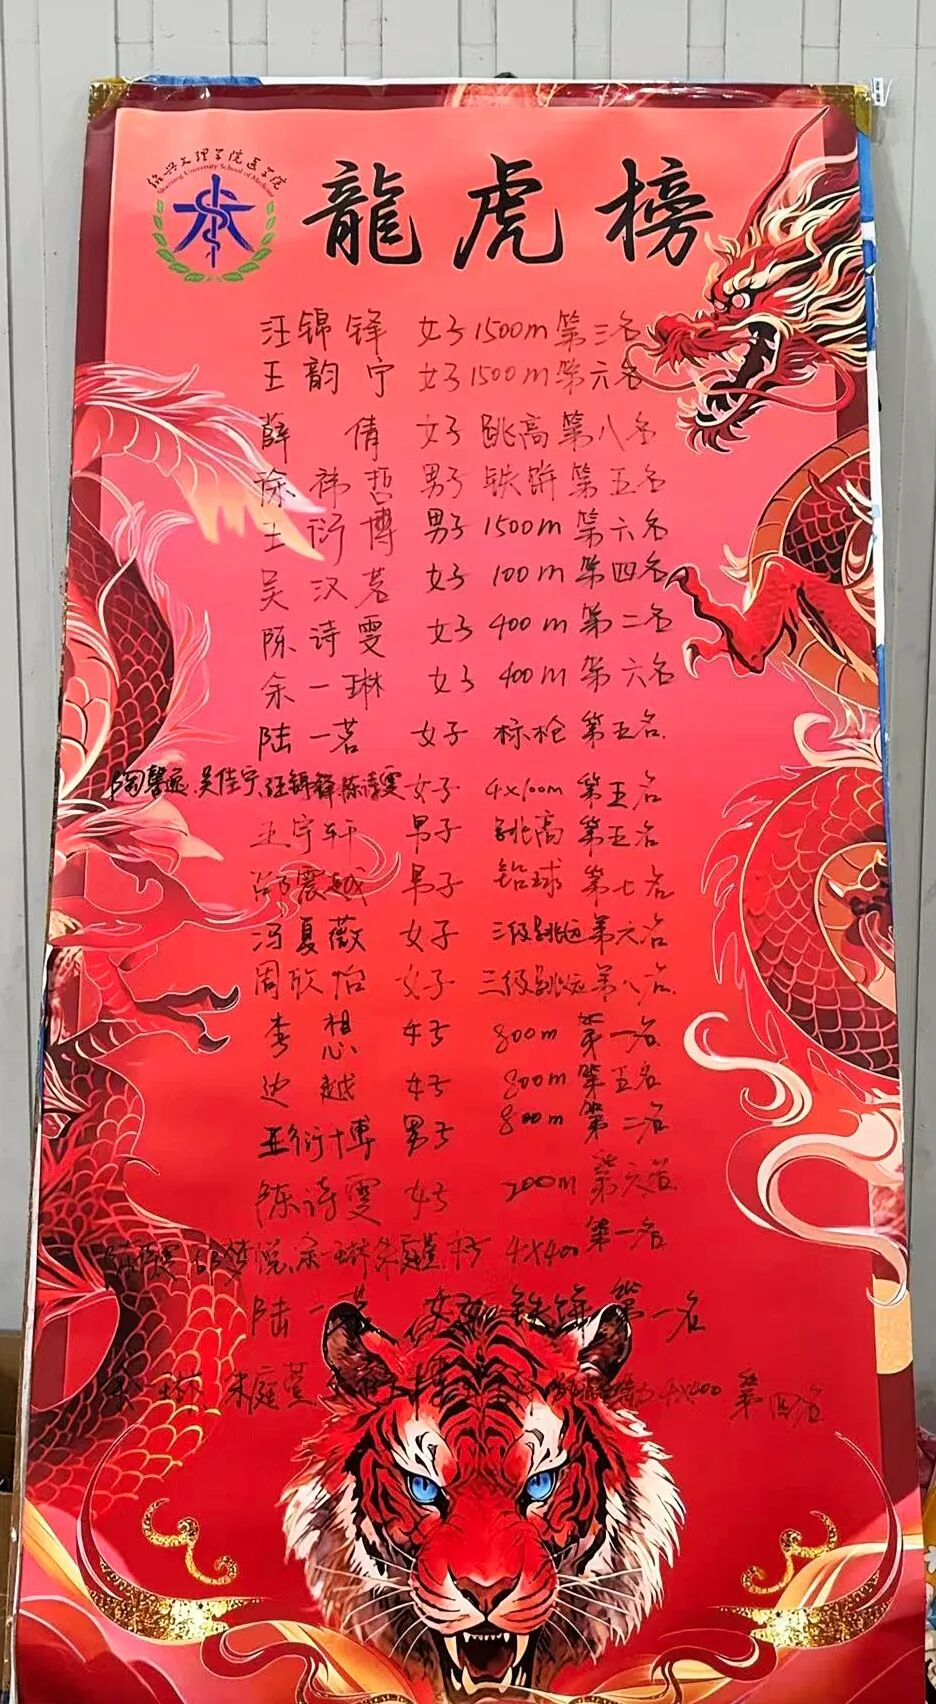 绍兴文理学院医学院
Shaoxing University School of Medicine
龍虎榜
汪锦锋 女子1500m第三名
王韵宁 女子1500m第六名
薛倩 女子 跳高第八名
徐祎哲 男子 铁饼 第五名
王衍博 男子 1500m 第六名
吴汉茗 女子 100m 第四名
陈诗雯 女子 400m 第二名
余一琳 女子 400m 第六名
陆一茗 女子 标枪 第五名
陶馨逸、吴佳宁、汪锦锋、陈诗雯 女子 4×100m 第五名
王宇轩 男子 跳高 第五名
邵震越 男子 铅球 第七名
冯夏薇 女子 三级跳远 第六名
周欣怡 女子 三级跳远 第八名
李想 女子 800m 第一名
边越 女子 800m 第五名
王衍博 男子 800m 第二名
陈诗雯 女子 200m 第六名
陈诗雯 梦悦、余一琳 女子 4×400 第一名
陆一茗 女子 铁饼 第一名
余一琳 朱庭萱 博 4×400 第四名